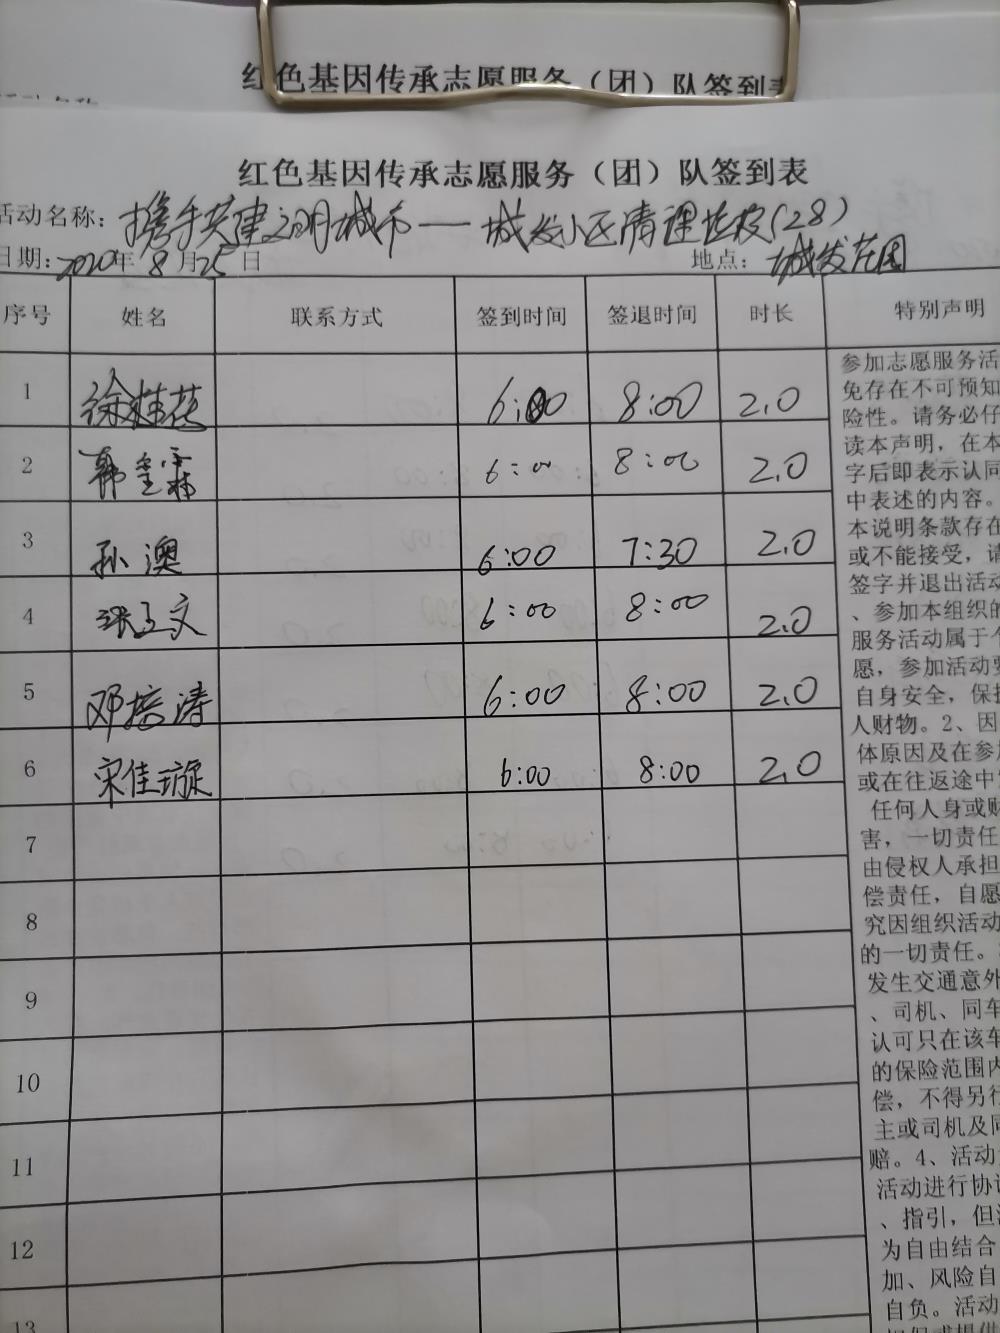 红色基因传承志愿服务（团）队签到表
红色基因传承志愿服务（团）队签到表
活动名称：携手共建文明城市——城发小区清理垃圾（28）
日期：2020年8月25日 地点：城发花园
序号 姓名 联系方式 签到时间 签退时间 时长 特别声明
1 徐桂花 6:00 8:00 2.0
2 韩玺霖 6:00 8:00 2.0
3 孙澳 6:00 7:30 2.0
4 张文 6:00 8:00 2.0
5 邓培涛 6:00 8:00 2.0
6 宋佳璇 6:00 8:00 2.0
7
8
9
10
11
12
13
参加志愿服务活
免存在不可预知
险性。请务必仔
读本声明，在本
字后即表示认同
中表述的内容。
本说明条款存在
或不能接受，请
签字并退出活动
、参加本组织的
服务活动属于个
愿，参加活动要
自身安全，保护
人财物。2、因
体原因及在参加
或在往返途中
任何人身或财
害，一切责任
由侵权人承担
偿责任，自愿
究因组织活动
的一切责任。
发生交通意外
、司机、同车
认可只在该车
的保险范围内
偿，不得另行
主或司机及同
赔。4、活动
活动进行协
、指引，但
为自由结合
加、风险自
自负。活动